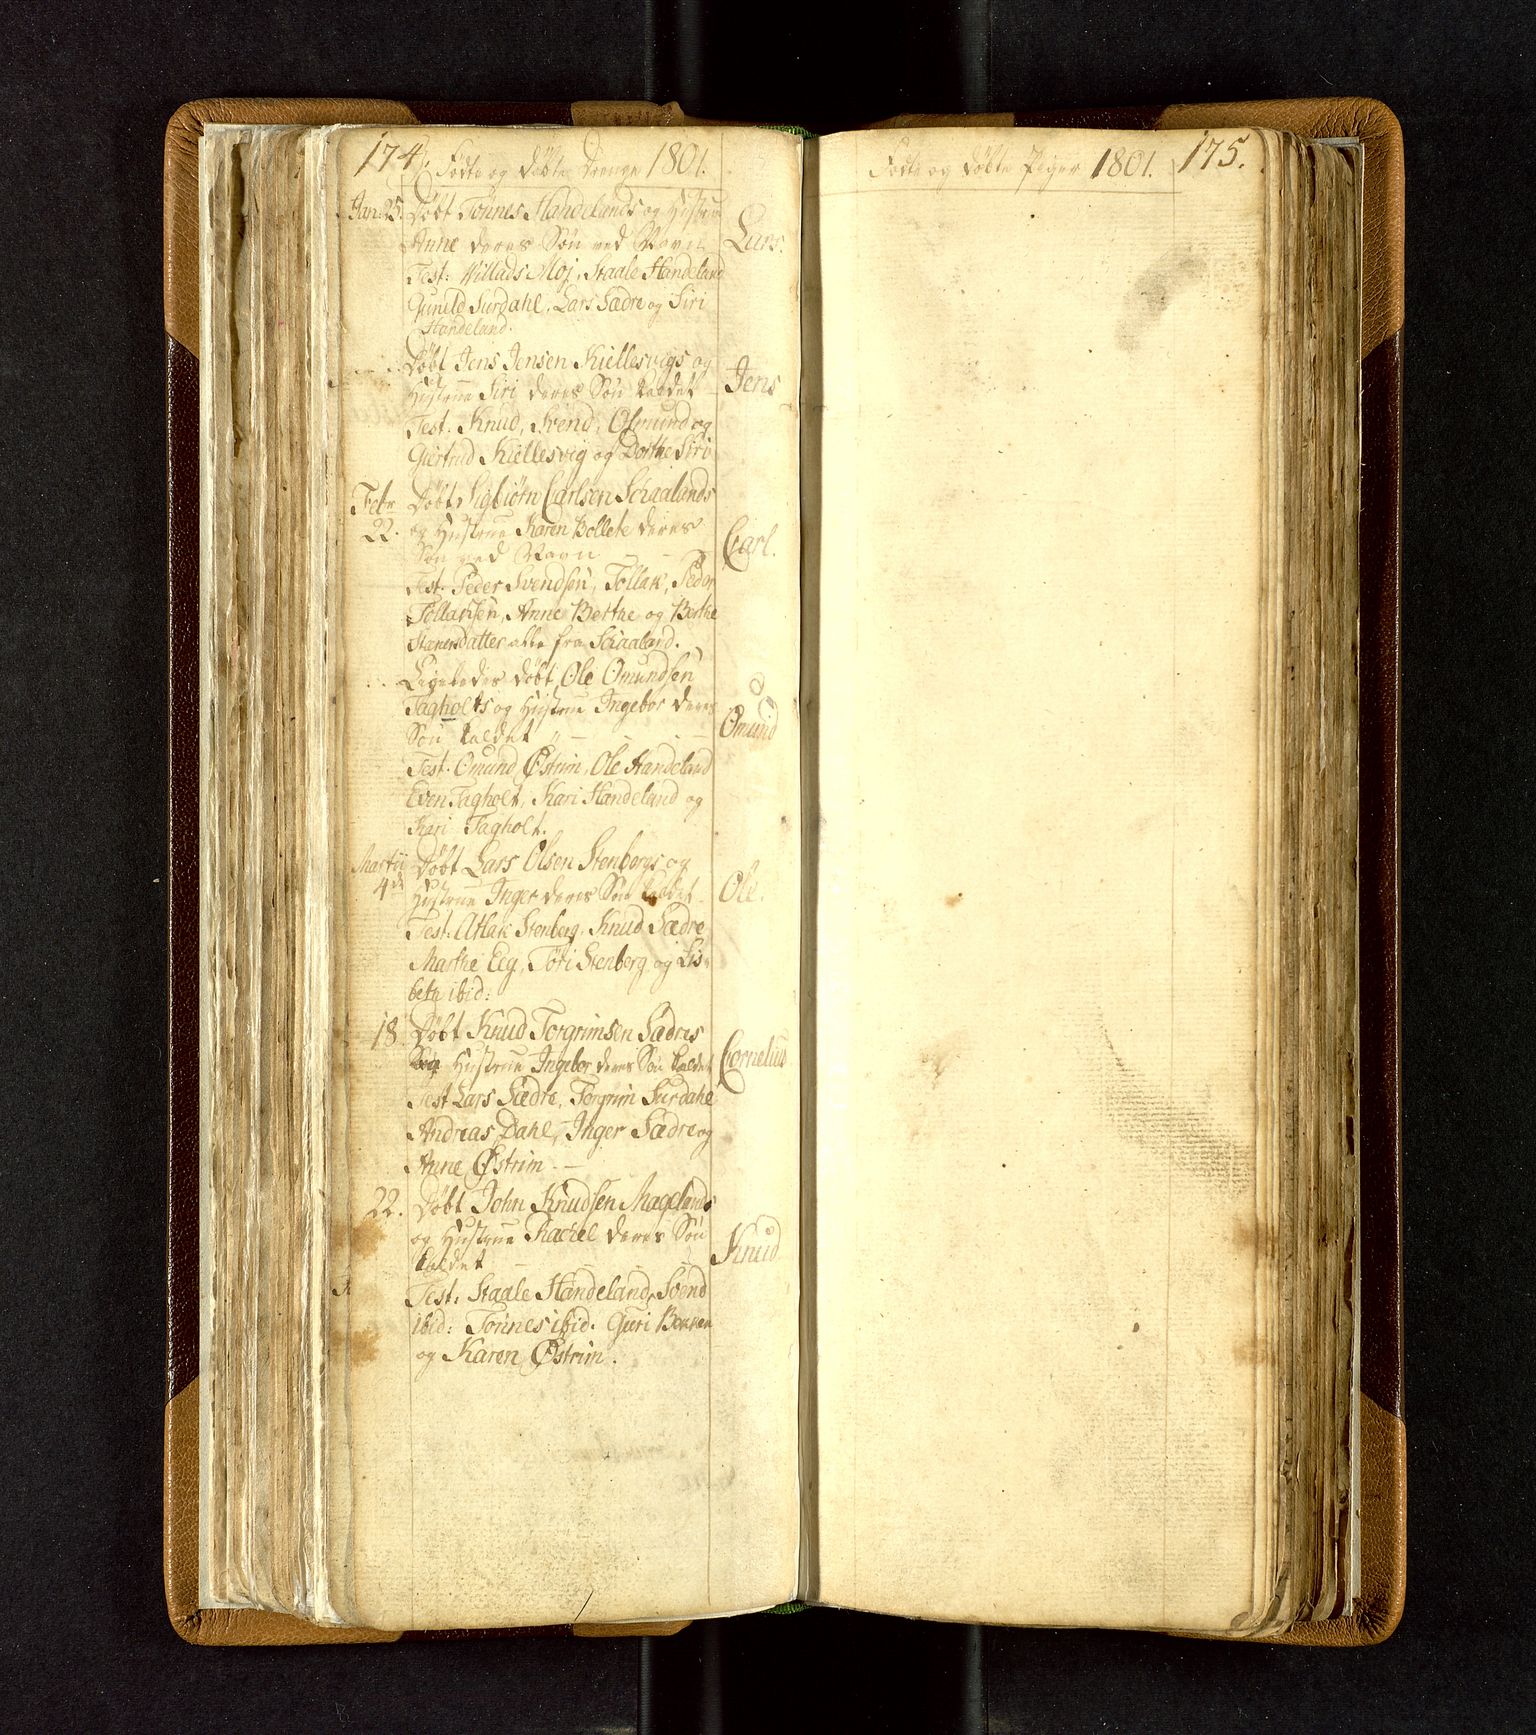 174. Födte og döbte Drenge 1801.
Jan: 25. Döbt Tönnes Handelands og Hustrue
Anne deres Sön ved Navn Lars.
Test: Villads Moj, Staale Handeland
Gunild Surdahl, Lars Sædre og Siri
Handeland.
Döbt Jens Jensen Kiellesvigs og
Hustrue Siri deres Sön kaldet Jens
Test. Knud, Svend, Osmund og
Giertrud Kiellesvig og Dorthe Siri
Febr Döbt Sigbiörn Carlsen Schaalands
22. og Hustrue Karen Bollete deres
Sön ved Navn Carl.
Test. Peder Svendsen, Tollak, Peder
Tollaksen, Anne Berthe og Berthe
Stenersdatter alle fra Schaaland.
Ligeledes döbt Ole Omundsen
Tagholts og Hustrue Ingebor deres
Sön kaldet Omund
Test. Omund Østrim, Ole Handeland
Even Tagholt, Kari Handeland og
Kari Tagholt.
Martii Döbt Lars Olsen Stenbergs og
4de Hustrue Inger deres Sön kaldet Ole.
Test: Atlak Stenberg, Knud Sædre
Marthe Eeg, Töri Stenberg og Lis-
beth ibid:
18. Döbt Knud Torgrimsen Sædres
og Hustrue Ingebor deres Sön kaldet Cornelius
Test Lars Sædre, Torgrim Surdahl
Andreas Dahl, Inger Sædre og
Anne Østrim.
22. Döbt John Knudsen Magelands
og Hustrue Rachel deres Sön
kaldet Knud
Test: Staale Handeland, Svend
ibid: Tönnes ibid. Guri
og Karen Østrim.
Födte og döbte Piger 1801. 175.